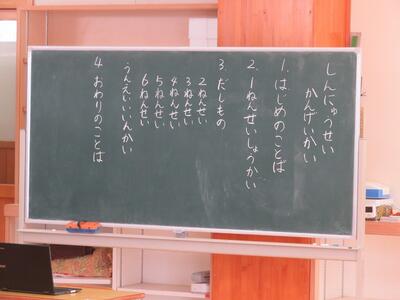 しんにゅうせい
かんげいかい
1. はじめのことば
2. 1ねんせいしょうかい
3. だしもの
2ねんせい
3ねんせい
4ねんせい
5ねんせい
6ねんせい
うんえいいいんかい
4 おわりのことば